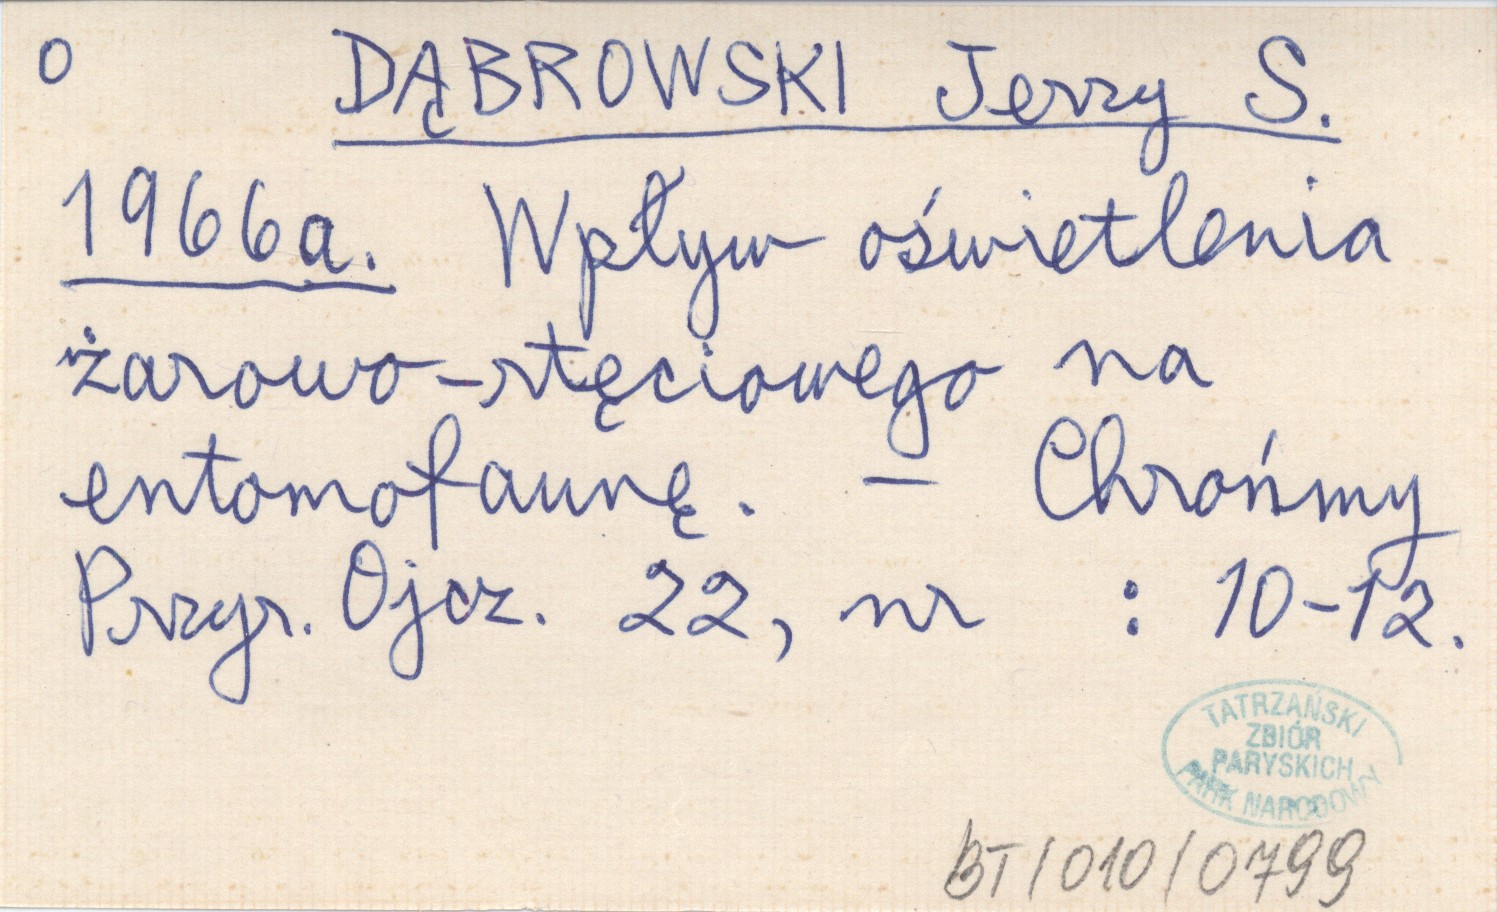 o DĄBROWSKI Jerzy S.
1966a. Wpływ oświetlenia
żarowo-rtęciowego na
entomofaunę. — Chrońmy
Przyr. Ojcz. 22, nr : 10-12.
TATRZAŃSKI
ZBIÓR
PARYSKICH
PARK NARODOWY
BT/010/0799